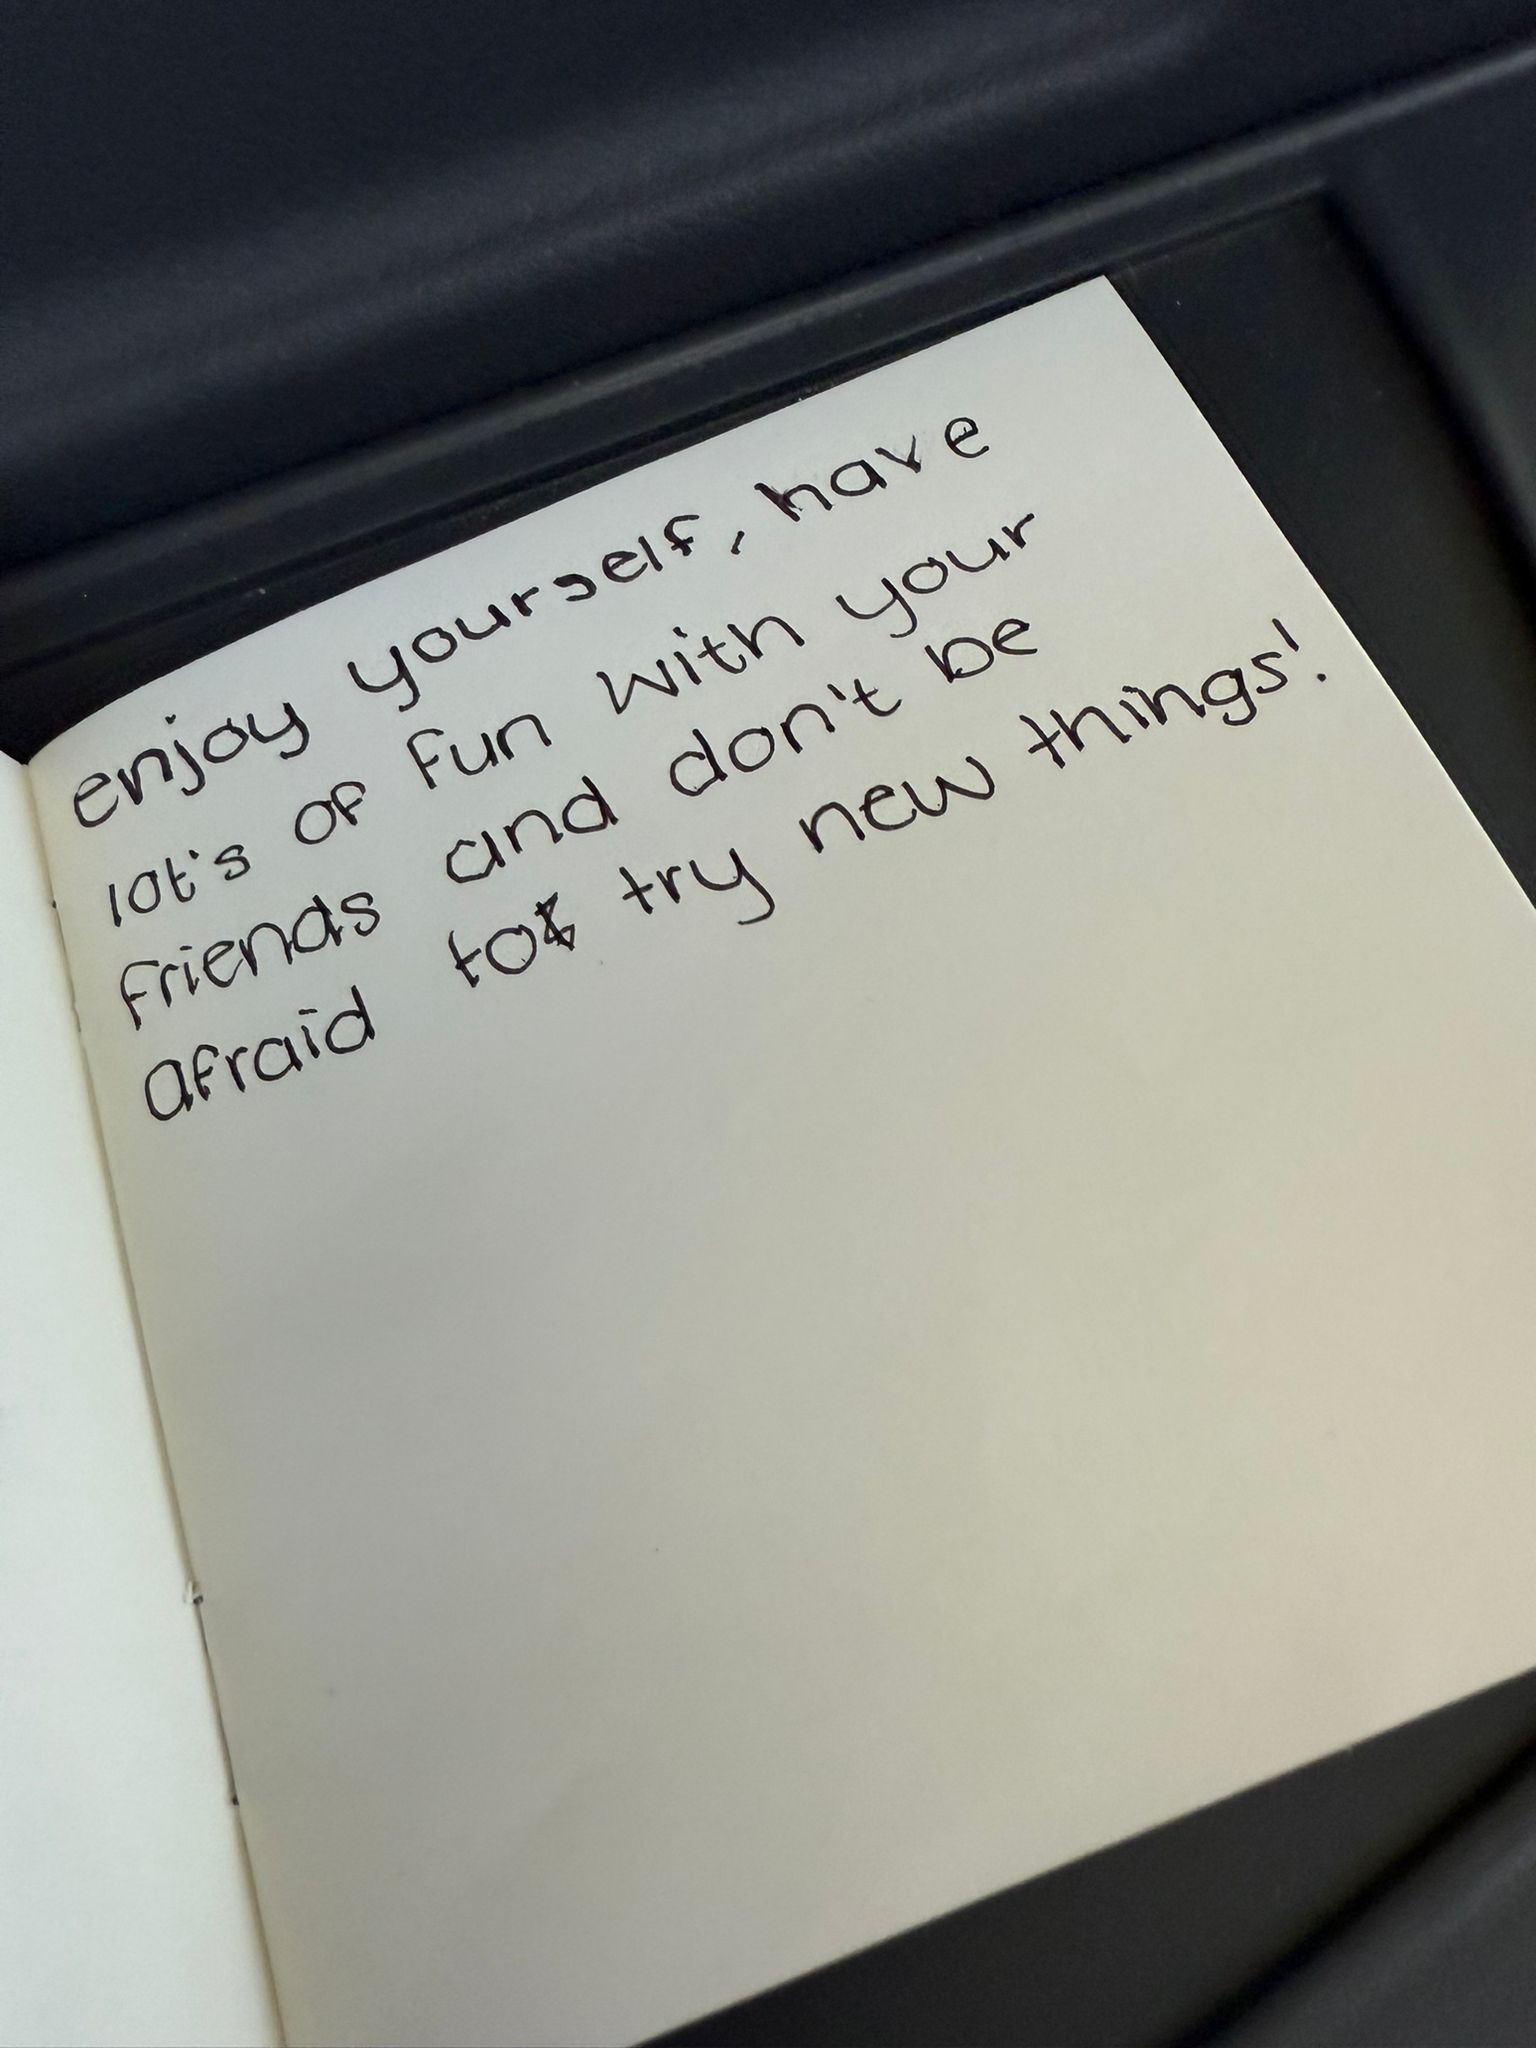 enjoy yourself, have
lot's of fun with your
friends and don't be
afraid to try new things!